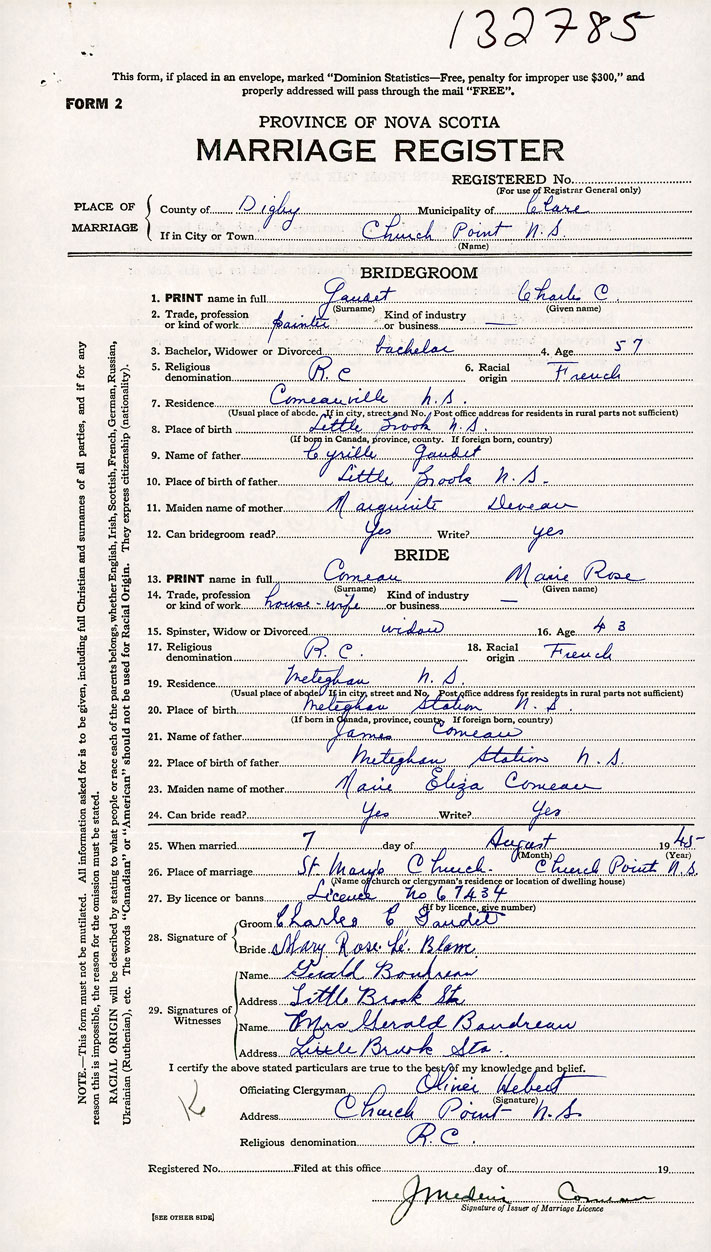 132785
This form, if placed in an envelope, marked "Dominion Statistics—Free, penalty for improper use $300," and
properly addressed will pass through the mail "FREE".
FORM 2
PROVINCE OF NOVA SCOTIA
MARRIAGE REGISTER
REGISTERED No.
(For use of Registrar General only)
PLACE OF MARRIAGE
County of Digby Municipality of Clare
If in City or Town Church Point N.S.
(Name)
BRIDEGROOM
1. PRINT name in full Gaudet Charles C.
(Surname) (Given name)
2. Trade, profession or kind of work painter Kind of industry or business —
3. Bachelor, Widower or Divorced bachelor 4. Age 57
5. Religious denomination R.C 6. Racial origin French
7. Residence Comeauville N.S.
(Usual place of abode. If in city, street and No. Post office address for residents in rural parts not sufficient)
8. Place of birth Little Brook N.S.
(If born in Canada, province, county. If foreign born, country)
9. Name of father Cyrille Gaudet
10. Place of birth of father Little Brook N.S.
11. Maiden name of mother Marguerite Deveau
12. Can bridegroom read? Yes Write? yes
BRIDE
13. PRINT name in full Comeau Marie Rose
(Surname) (Given name)
14. Trade, profession or kind of work house-wife Kind of industry or business —
15. Spinster, Widow or Divorced widow 16. Age 43
17. Religious denomination R.C. 18. Racial origin French
19. Residence Meteghan N.S.
(Usual place of abode. If in city, street and No. Post office address for residents in rural parts not sufficient)
20. Place of birth Meteghan Station N.S.
(If born in Canada, province, county. If foreign born, country)
21. Name of father James Comeau
22. Place of birth of father Meteghan Station N.S.
23. Maiden name of mother Marie Eliza Comeau
24. Can bride read? Yes Write? Yes
25. When married 7 day of August 1945
(Month) (Year)
26. Place of marriage St. Mary's Church. Church Point N.S.
(Name of church or clergyman's residence or location of dwelling house)
27. By licence or banns Licence No 67434
(If by licence, give number)
28. Signature of
Groom Charles C Gaudet
Bride Mary Rose Le Blanc
29. Signatures of Witnesses
Name Gerald Boudreau
Address Little Brook Sta
Name Mrs Gerald Boudreau
Address Little Brook Sta.
I certify the above stated particulars are true to the best of my knowledge and belief.
Officiating Clergyman Oliver Hebert
(Signature)
Address Church Point N.S.
Religious denomination R.C.
Registered No. Filed at this office day of 19
Comeau
Signature of Issuer of Marriage Licence
[SEE OTHER SIDE]
NOTE.—This form must not be mutilated. All information asked for is to be given, including full Christian and surnames of all parties, and if for any
reason this is impossible, the reason for the omission must be stated.
RACIAL ORIGIN will be described by stating to what people or race each of the parents belongs, whether English, Irish, Scottish, French, German, Russian,
Ukrainian (Ruthenian), etc. The words "Canadian" or "American" should not be used for Racial Origin. They express citizenship (nationality).